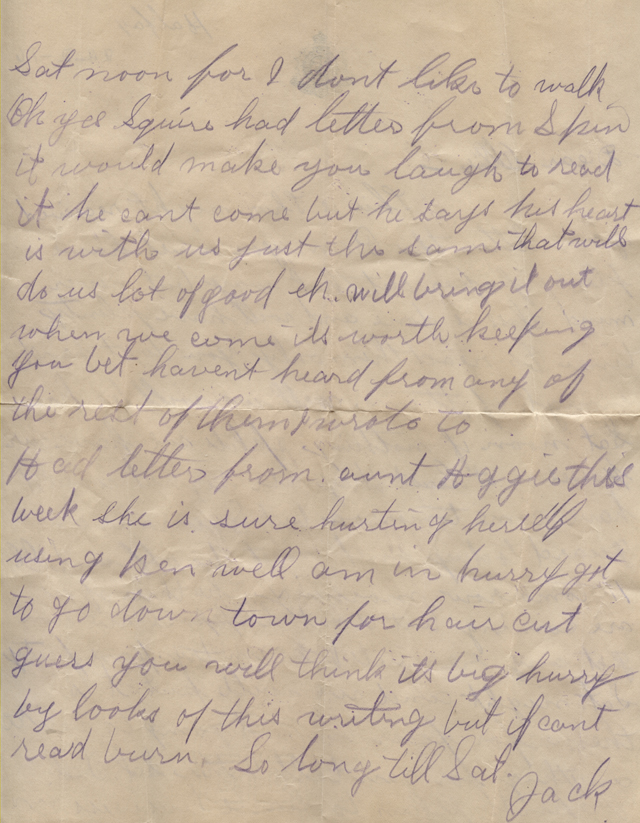 Sat noon for I dont like to walk
Oh yes Squire had letter from Spin
it would make you laugh to read
it he cant come but he says his heart
is with us just the same that will
do us lot of good eh. will bring it out
when we come its worth keeping
you bet. havent heard from any of
the rest of them I wrote to
Had letter from aunt Aggie this
week she is sure hurting herself
using Ben well am in hurry got
to go down town for hair cut
guess you will think its big hurry
by looks of this writing but if cant
read burn. So long till Sat.
Jack